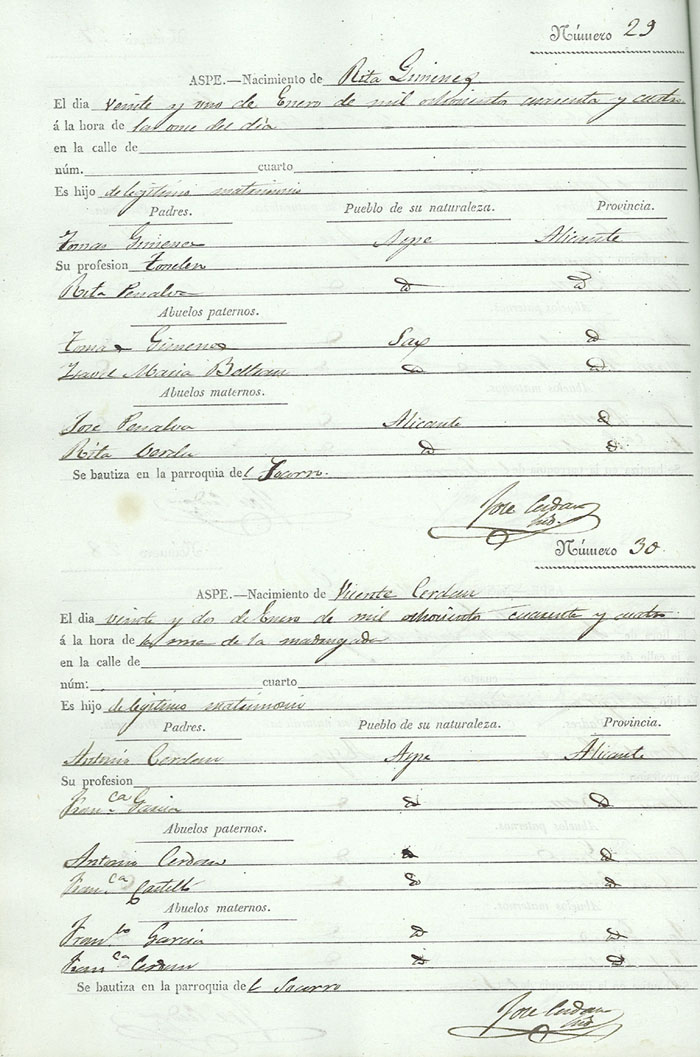 Número 29
ASPE.—Nacimiento de Rita Gimenez
El dia veinte y uno de Enero de mil ochocientos cuarenta y cuatro
á la hora de las once del día
en la calle de
núm. cuarto
Es hijo de legitimo matrimonio
Padres. Pueblo de su naturaleza. Provincia.
Tomas Gimenez Aspe Alicante
Su profesion
Rita Penalva d d
Abuelos paternos.
Tomas Gimenes Sax d
Isavel Maria Beltran d d
Abuelos maternos.
Jose Penalva Alicante d
Rita Verdu d d
Se bautiza en la parroquia del Socorro.
Jose Cerdan
Número 30
ASPE.—Nacimiento de Vicente Cerdan
El dia veinte y dos de Enero de mil ochocientos cuarenta y cuatro
á la hora de la una de la madrugada
en la calle de
núm: cuarto
Es hijo de legitimo matrimonio
Padres. Pueblo de su naturaleza. Provincia.
Antonio Cerdan Aspe Alicante
Su profesion
Fran.ca Garcia d d
Abuelos paternos.
Antonio Cerdan d d
Fran.ca Castelló d d
Abuelos maternos.
Fran.co Garcia d d
Fran.ca Cerdan d d
Se bautiza en la parroquia del Socorro
Jose Cerdan